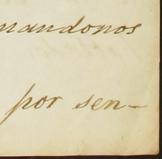 mandonos
por sen-